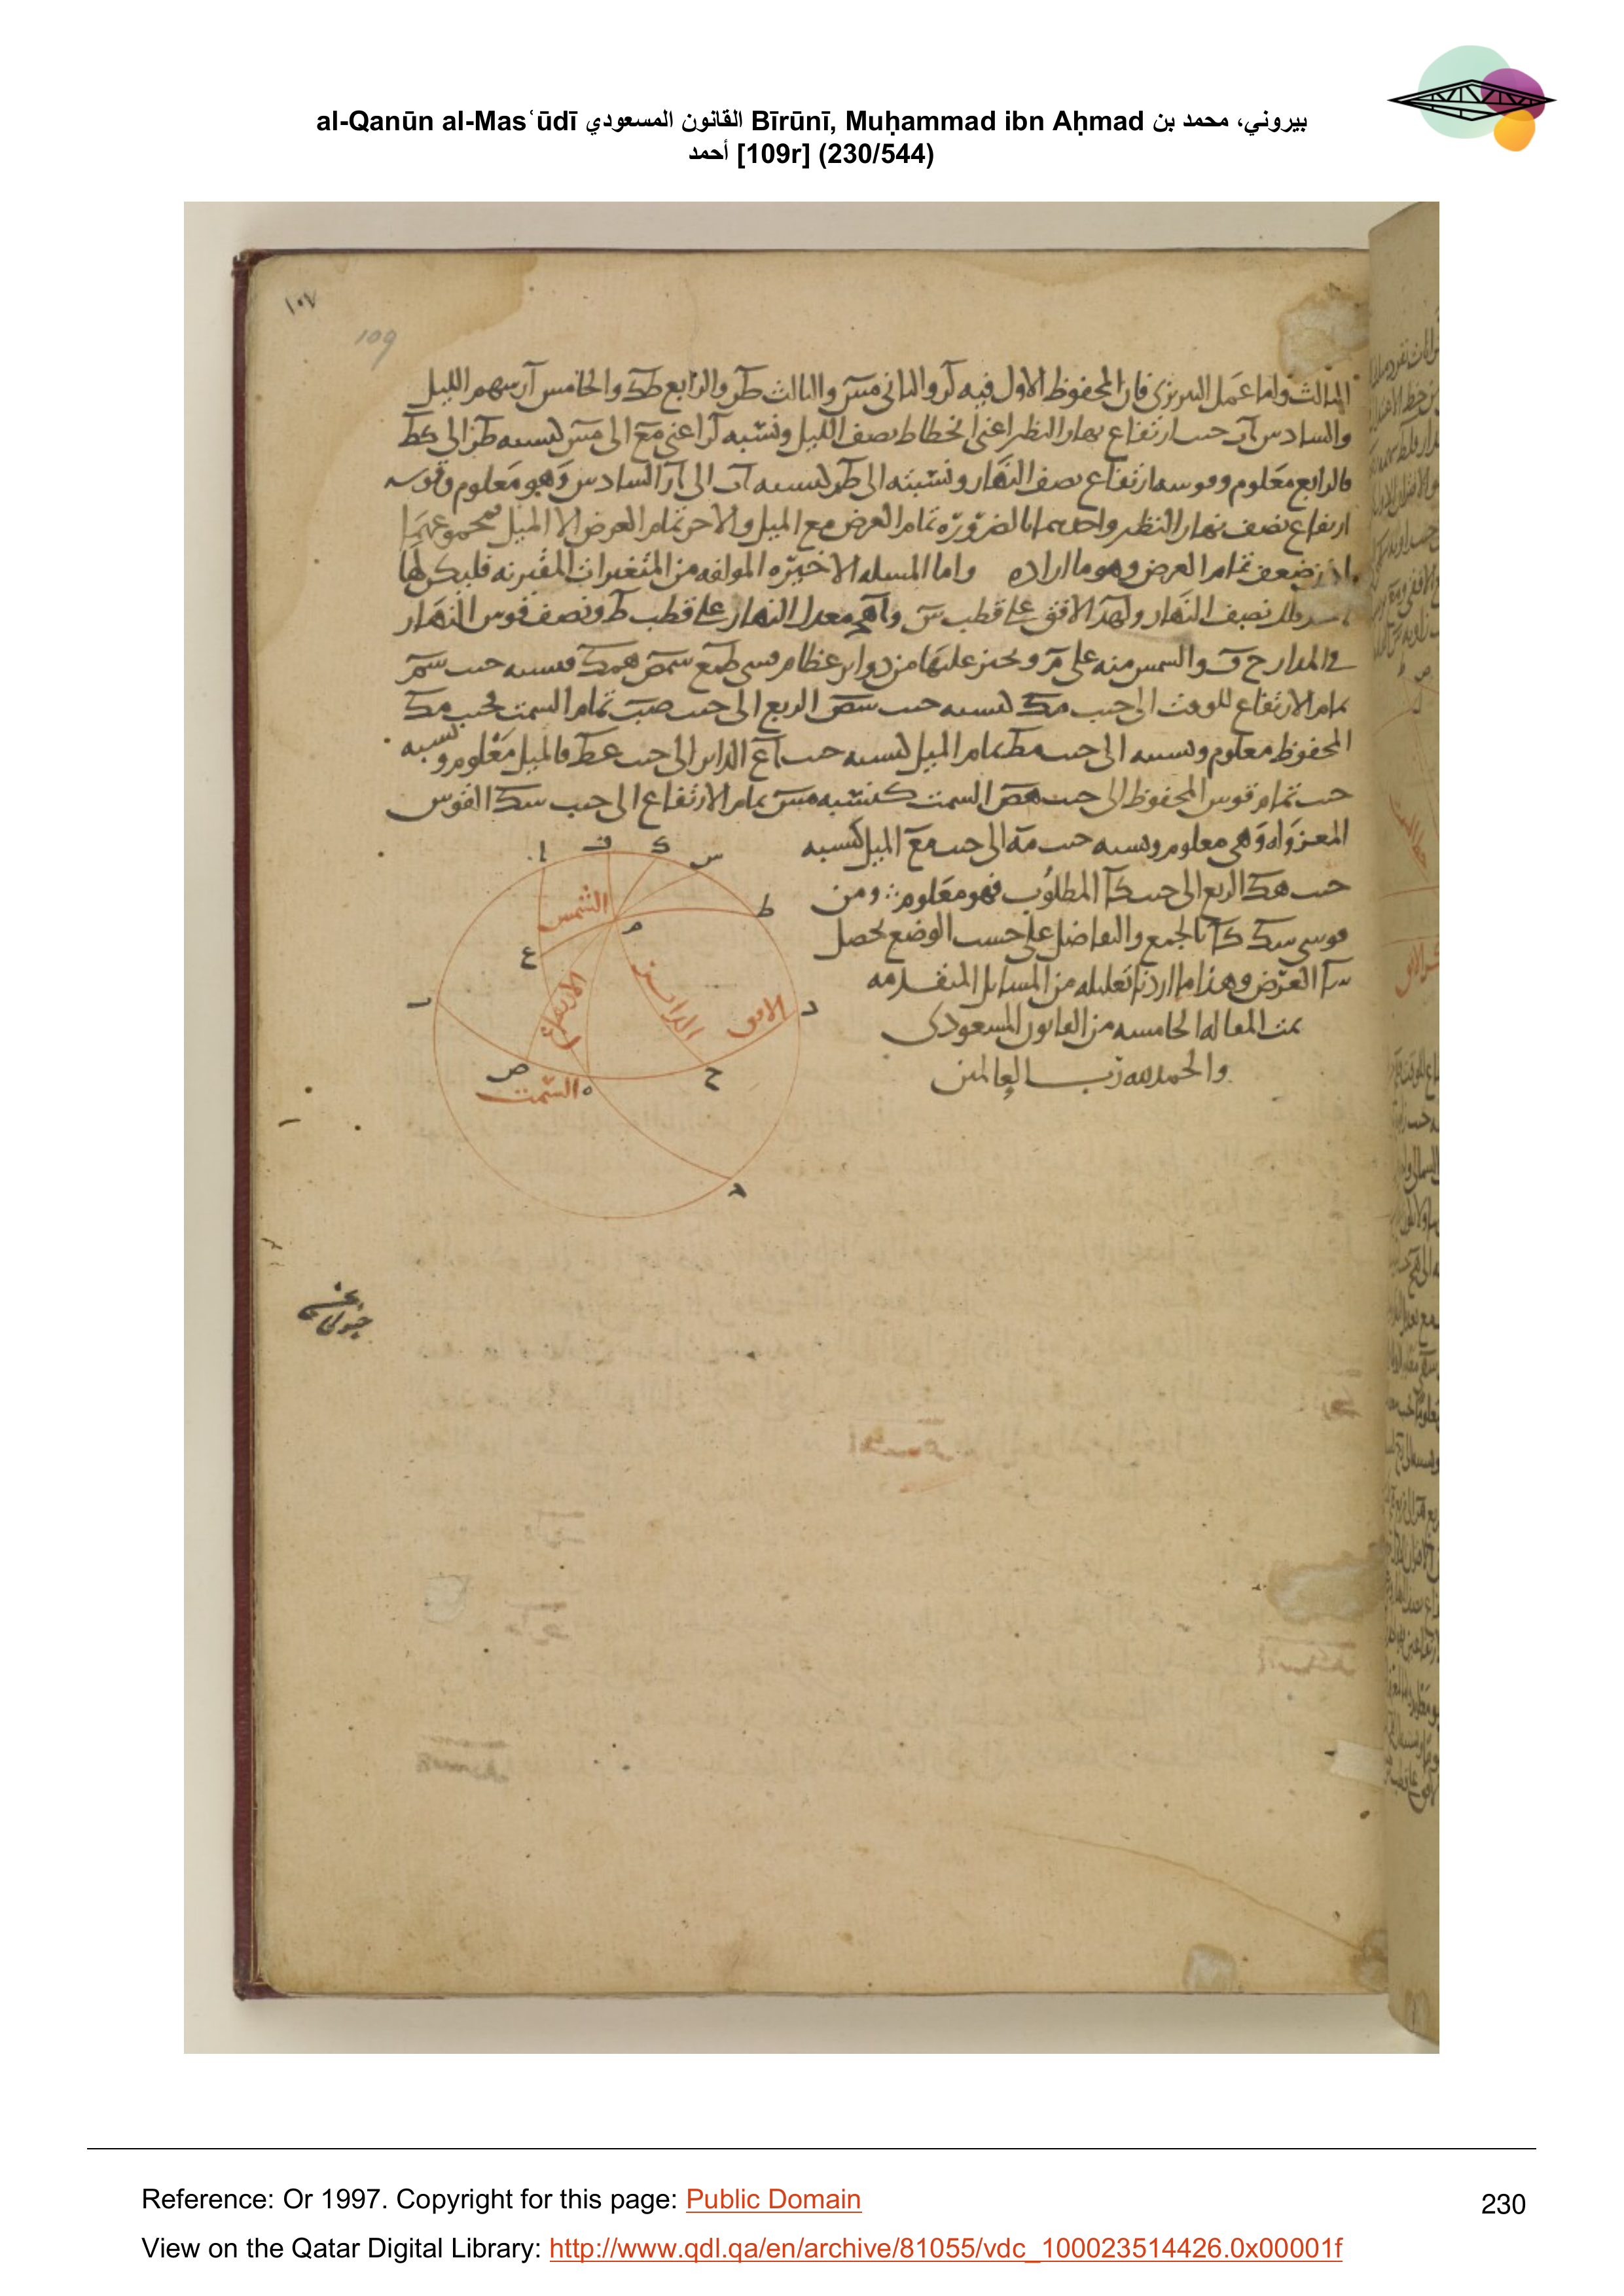 al-Qanūn al-Masʿūdī القانون المسعودي Bīrūnī, Muḥammad ibn Aḥmad بيروني، محمد بن
أحمد [109r] (230/544)
١٠٧
109
الثالث واما عمل السريزي فان المحفوظ الاول فيه لر والثاني مس والثالث طر والرابع طك والخامس آر سهم الليل
والسادس آب جيب ارتفاع نهار النظير اعني انحطاط نصف الليل ونسبة لر اعني مع الى مس كنسبة طر الى كط
فالرابع معلوم وقوسه ارتفاع نصف النهار ونسبته الى طر كنسبة آب الى آر السادس وهو معلوم وقوسه
ارتفاع نصف نهار النظير واحدهما بالضرورة تمام العرض مع الميل والاخر تمام العرض الا الميل فمجموعهما
اذن ضعف تمام العرض وهو ما اراده واما المسله الاخيره المولفه من المتغيرات المقترنه فليكن لها
نصف النهار و الافق على قطب س و معدل النهار على قطب ط ونصف قوس النهار
في المدار ح ف والشمس منه على م ونجيز عليها من دواير عظام قسي طمع سمص همك فنسبه جيب سم
تمام الارتفاع للوقت الى جيب مك كنسبه جيب سص الربع الى جيب صب تمام السمت فجيب مك
المحفوظ معلوم ونسبته الى جيب مط تمام الميل كنسبه جيب آع الداير الى جيب عط فالميل معلوم ونسبه
جيب تمام قوس المحفوظ الى جيب هص السمت كنسبه مس تمام الارتفاع الى جيب سك القوس
المعزواه وهي معلوم ونسبه جيب مه الى جيب مع الميل كنسبه
جيب هك الربع الى جيب كا المطلوب فهو معلوم ومن
قوسي سك كا بالجمع والتفاضل على حسب الوضع يحصل
سا العرض وهذا ما اردنا تعليله من المسايل المتقدمه
تمت المقاله الخامسه من القانون المسعودي
والحمد لله رب العالمين
ا ف ك س
ط
الشمس
م
ع
ب
الارتفاع
الداير
الافق
د
ص
ح
السمت
ه
Reference: Or 1997. Copyright for this page: Public Domain
230
View on the Qatar Digital Library: http://www.qdl.qa/en/archive/81055/vdc_100023514426.0x00001f